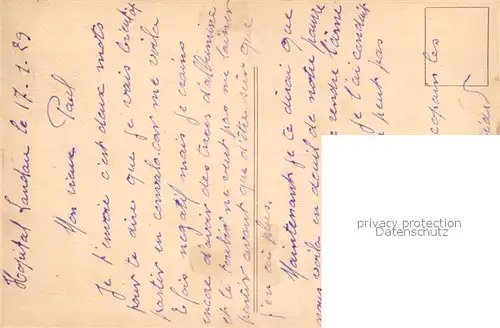 Hopital Landau le 17.1.29
Mon vieux Paul
Je t'envoie c'est deux mots
pour te dire que je vais bientôt
partir en convalo. car me voila
le foie negatif mais je crains
encore d'avoir des traces d'albumine
et le toubib ne veut pas me laisser
partir avant que d'être sûr que
j'en ai plus.
Maintenant je te dirai que
nous voila en deuil de notre pauvre
rendre l'âme
je l'ai conduit
peut pas
copain les
privacy protection
www.ansichtskarten-center.de